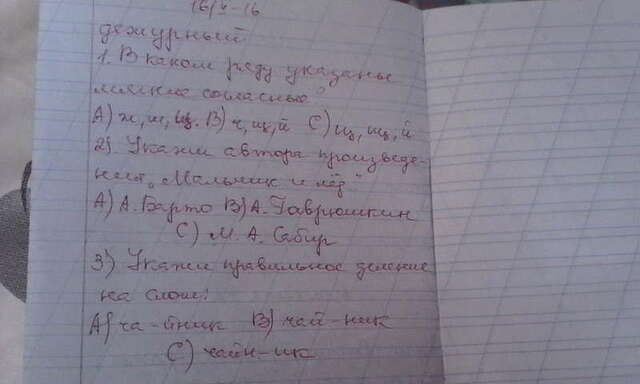 16/V-16
дежурный
1. В каком ряду указаны
мягкие согласные?
А) ж, ш, щ. В) ч, щ, й С) щ, щ, й
2). Укажи автора произведе-
ния „Мальчик и лёд"
А) А. Барто В) А. Гаврюшкин
С) М. А. Сабир
3) Укажи правильное деление
на слоги:
А) ча-йник В) чай-ник
С) чайн-ик